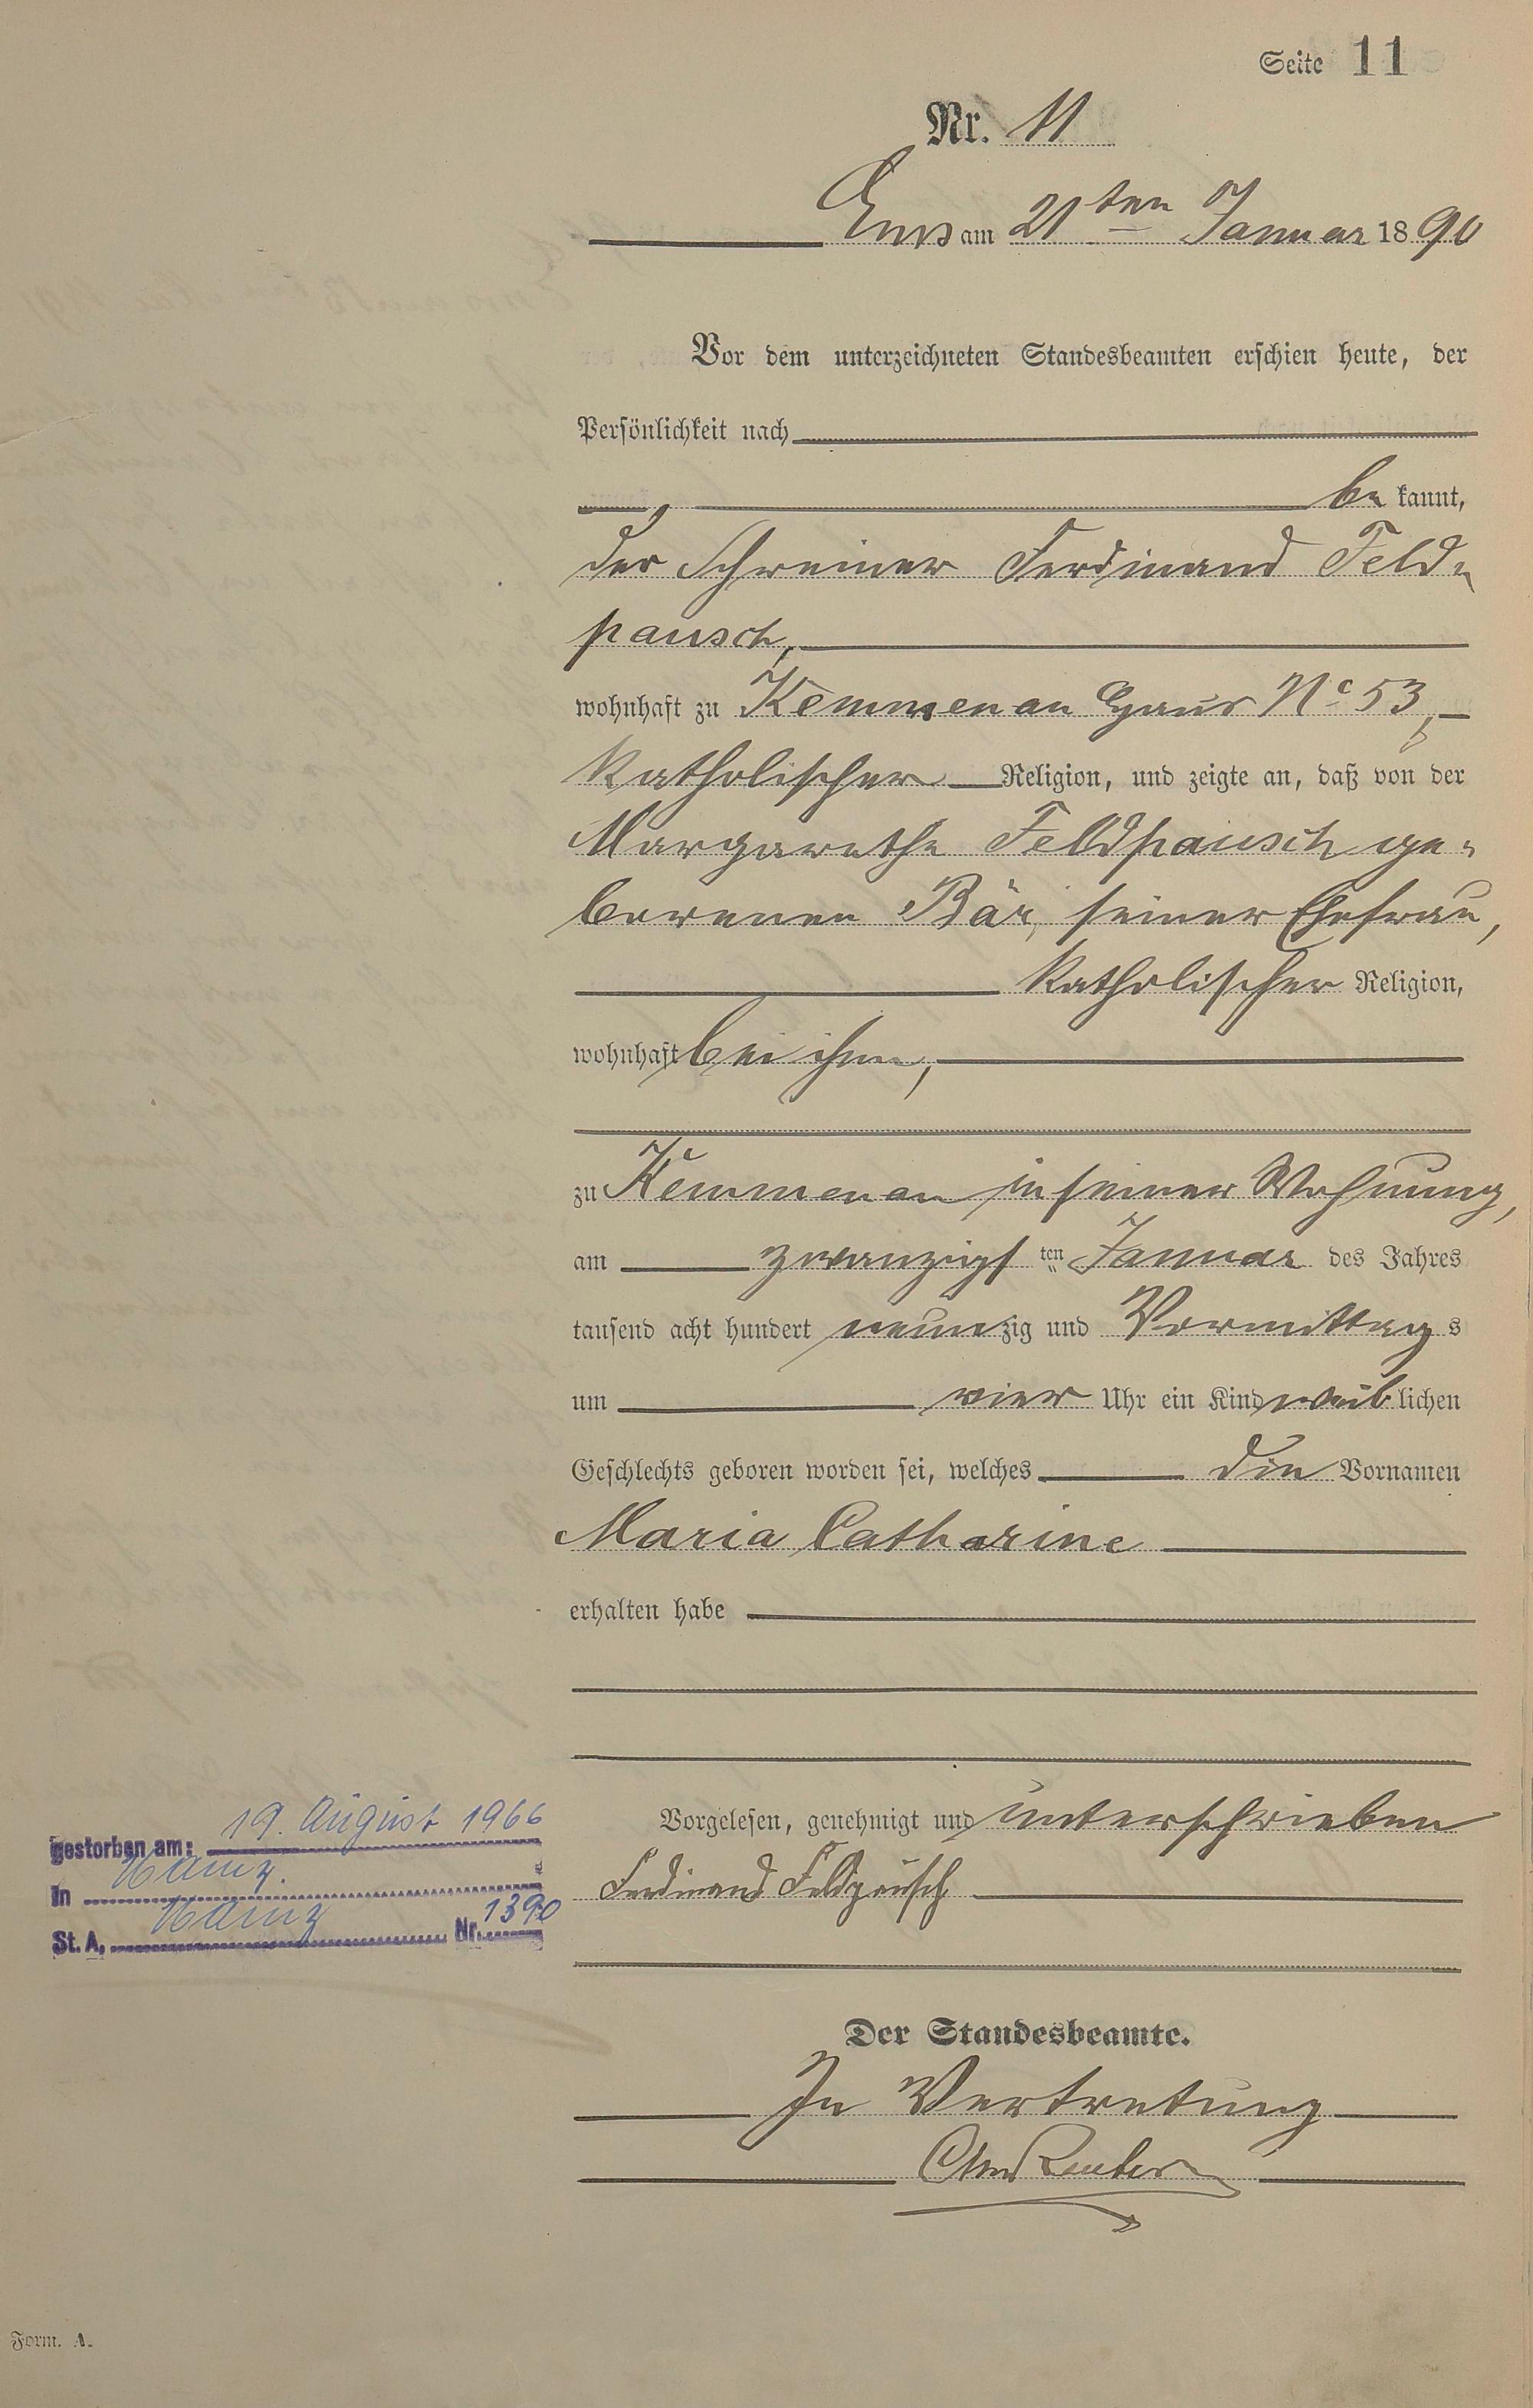 Seite 11
Nr. 11
Ems am 21ten Januar 1890
Vor dem unterzeichneten Standesbeamten erschien heute, der
Persönlichkeit nach
be kannt,
der Schreiner Ferdinand Feld-
pausch,
wohnhaft zu Kemmenau Haus No 53,
katholischer Religion, und zeigte an, daß von der
Margarethe Feldpausch ge-
borenen Bär, seiner Ehefrau,
katholischer Religion,
wohnhaft bei ihm,
zu Kemmenau in seiner Wohnung,
am zwanzigsten Januar des Jahres
tausend acht hundert neunzig und Vormittags
um vier Uhr ein Kind weiblichen
Geschlechts geboren worden sei, welches die Vornamen
Maria Catharine
erhalten habe
Vorgelesen, genehmigt und unterschrieben
Ferdinand Feldpausch
Der Standesbeamte.
In Vertretung
gestorben am: 19. August 1966
In Mainz.
St. A. Mainz Nr. 1390
Form. A.